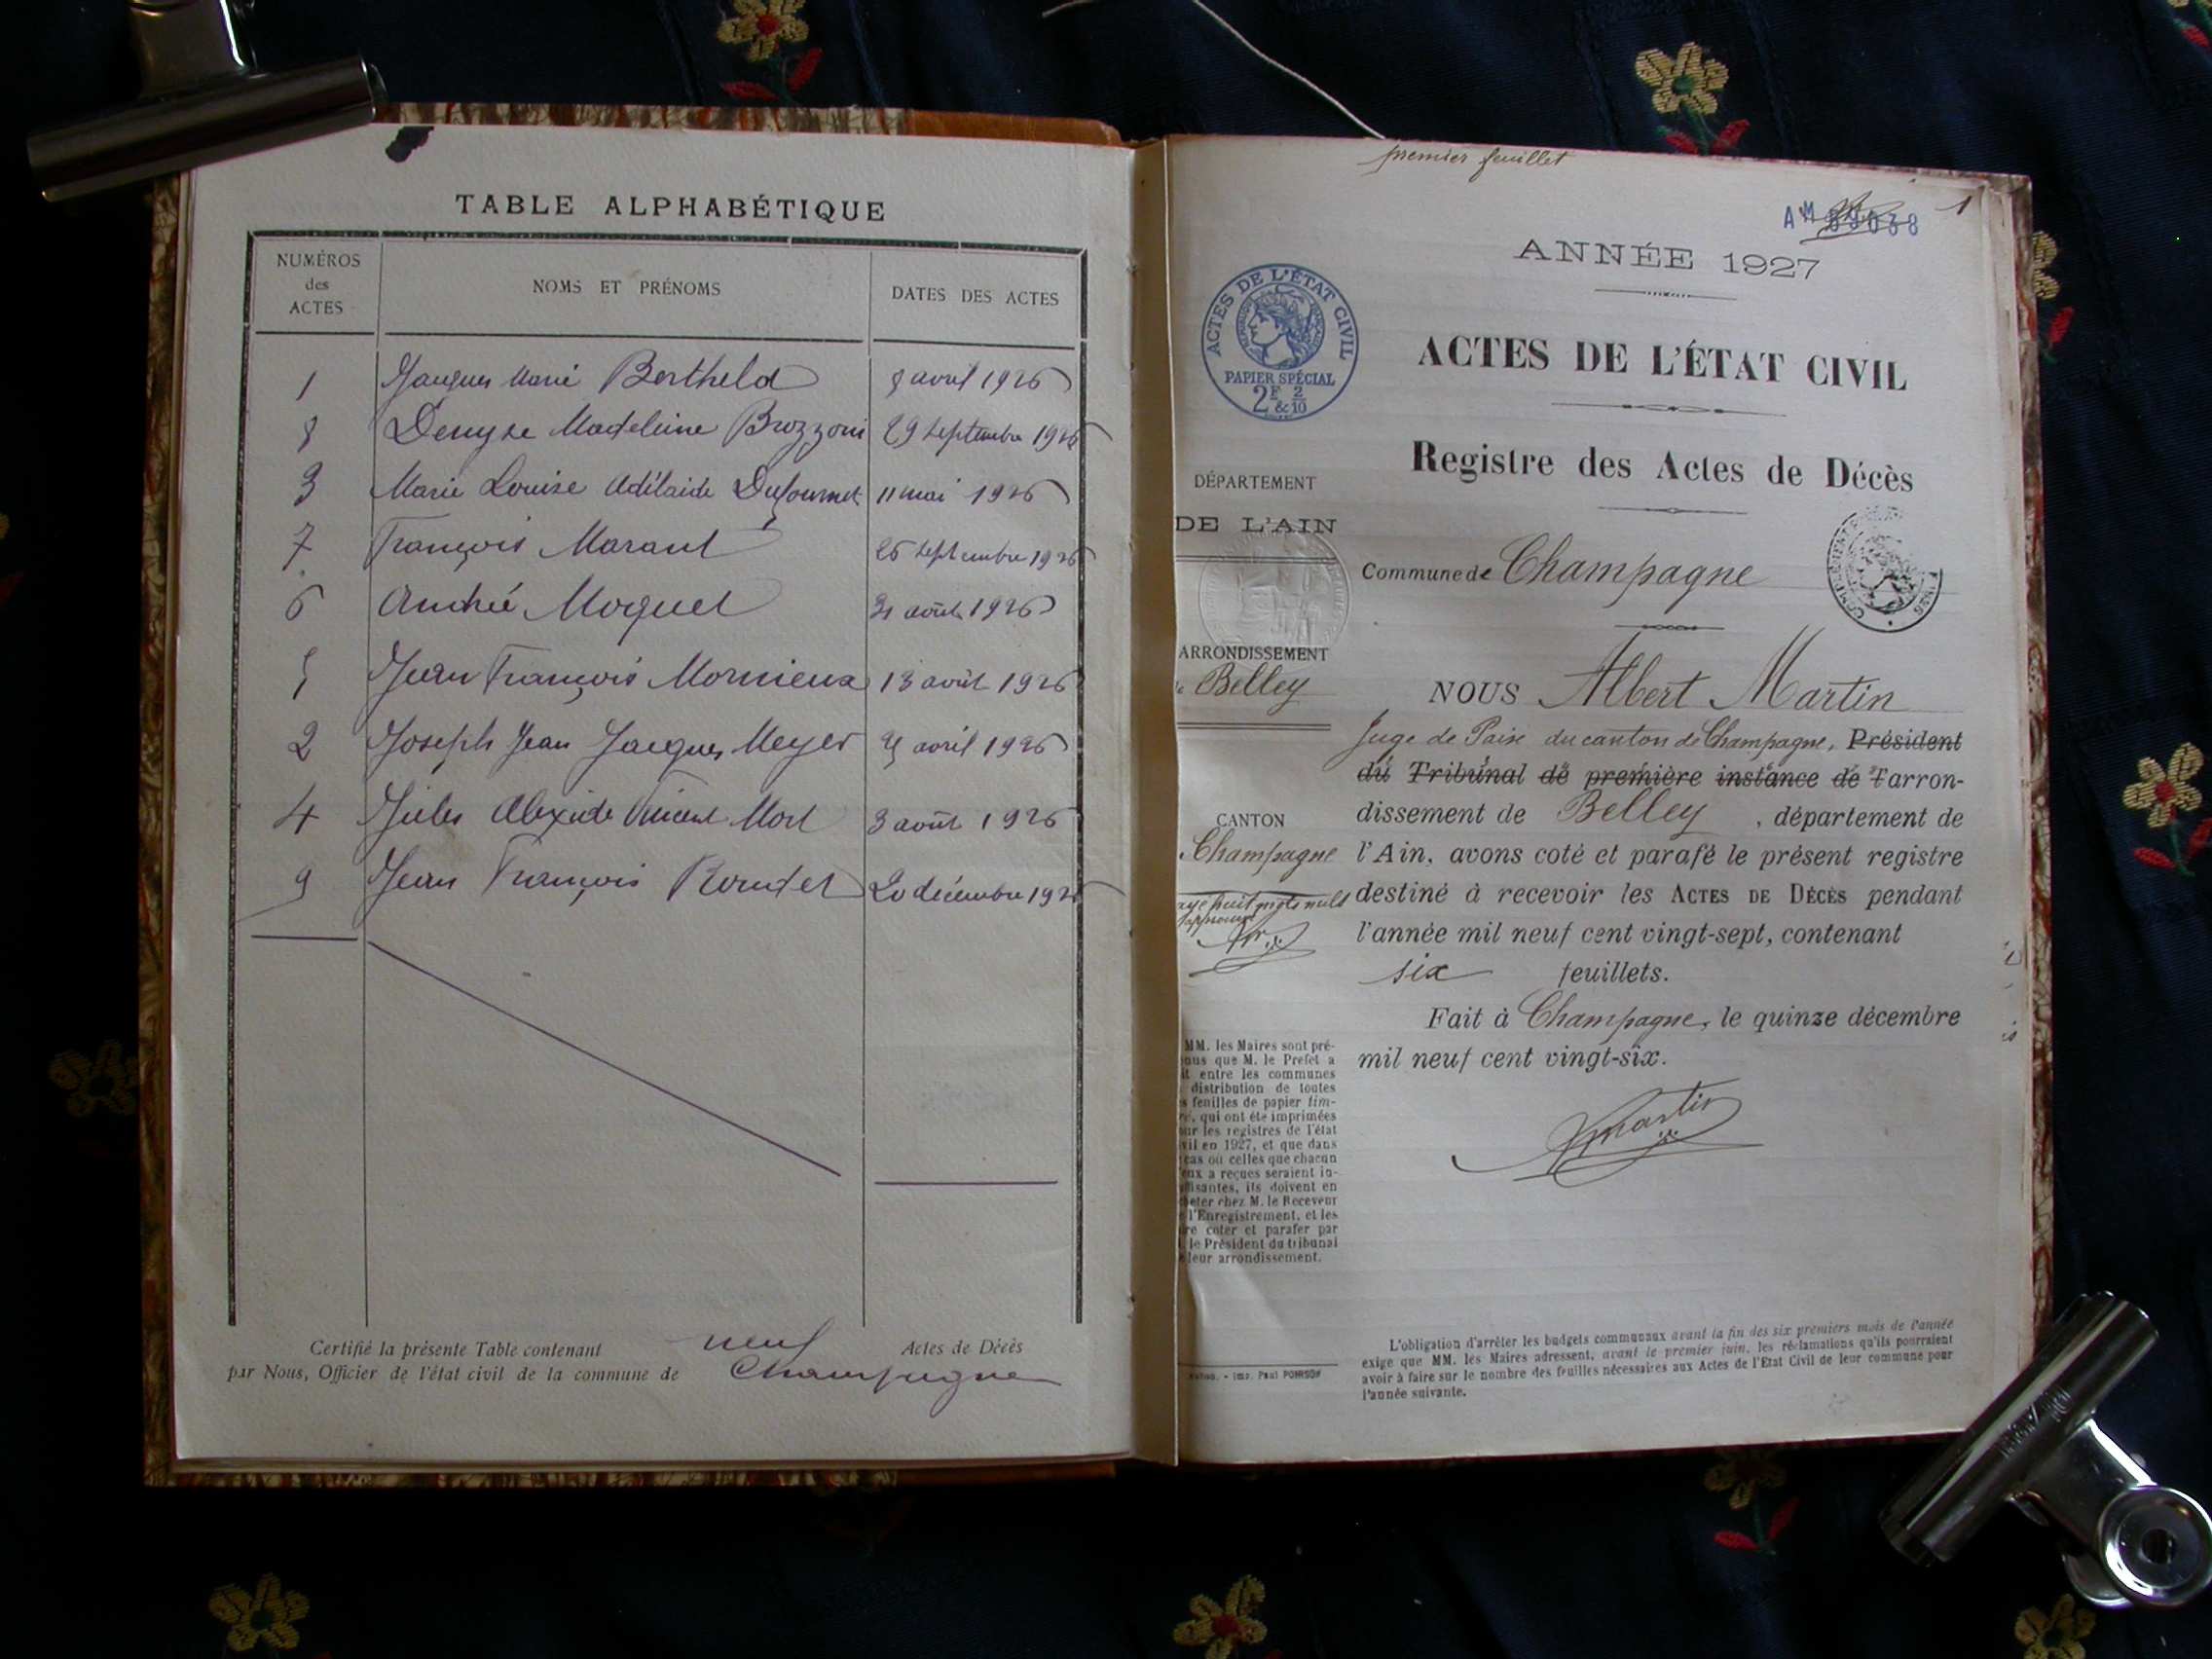 TABLE ALPHABÉTIQUE
NUMÉROS des ACTES
NOMS ET PRÉNOMS
DATES DES ACTES
1 Jacques Marie Bertheld 8 avril 1926
8 Denyse Madeleine Brozzoni 29 septembre 1926
3 Marie Louise Adélaïde Dufournet 11 mai 1926
7 François Marant 26 septembre 1926
6 André Moquet août 1926
5 Jean François Mornieux 13 août 1926
2 Joseph Jean Jacques Meyer avril 1926
4 Jules Vincent 3 août 1926
9 Jean François 20 décembre 1926
Certifié la présente Table contenant neuf Actes de Décès
par Nous, Officier de l'état civil de la commune de Champagne
premier feuillet
1
AM
ANNÉE 1927
ACTES DE L'ÉTAT CIVIL
PAPIER SPÉCIAL
2F 2/10
&
ACTES DE L'ÉTAT CIVIL
Registre des Actes de Décès
DÉPARTEMENT
DE L'AIN
Commune de Champagne
ARRONDISSEMENT
Belley
CANTON
Champagne
NOUS Albert Martin
Juge de Paix du canton de Champagne, Président
du Tribunal de première instance de l'arron-
dissement de Belley, département de
l'Ain, avons coté et parafé le présent registre
destiné à recevoir les ACTES DE DÉCÈS pendant
l'année mil neuf cent vingt-sept, contenant
six feuillets.
Fait à Champagne, le quinze décembre
mil neuf cent vingt-six.
Martin
huit mots nuls
MM. les Maires sont pré-
nus que M. le Préfet a
it entre les communes
distribution de toutes
s feuilles de papier tim-
ré, qui ont été imprimées
ur les registres de l'état
vil en 1927, et que dans
cas où celles que chacun
'eux a reçues seraient in-
ffisantes, ils doivent en
heter chez M. le Receveur
l'Enregistrement, et les
re coter et parafer par
le Président du tribunal
leur arrondissement.
Imp. Paul
L'obligation d'arrêter les budgets communaux avant la fin des six premiers mois de l'année
exige que MM. les Maires adressent, avant le premier juin, les réclamations qu'ils pourraient
avoir à faire sur le nombre des feuilles nécessaires aux Actes de l'Etat Civil de leur commune pour
l'année suivante.